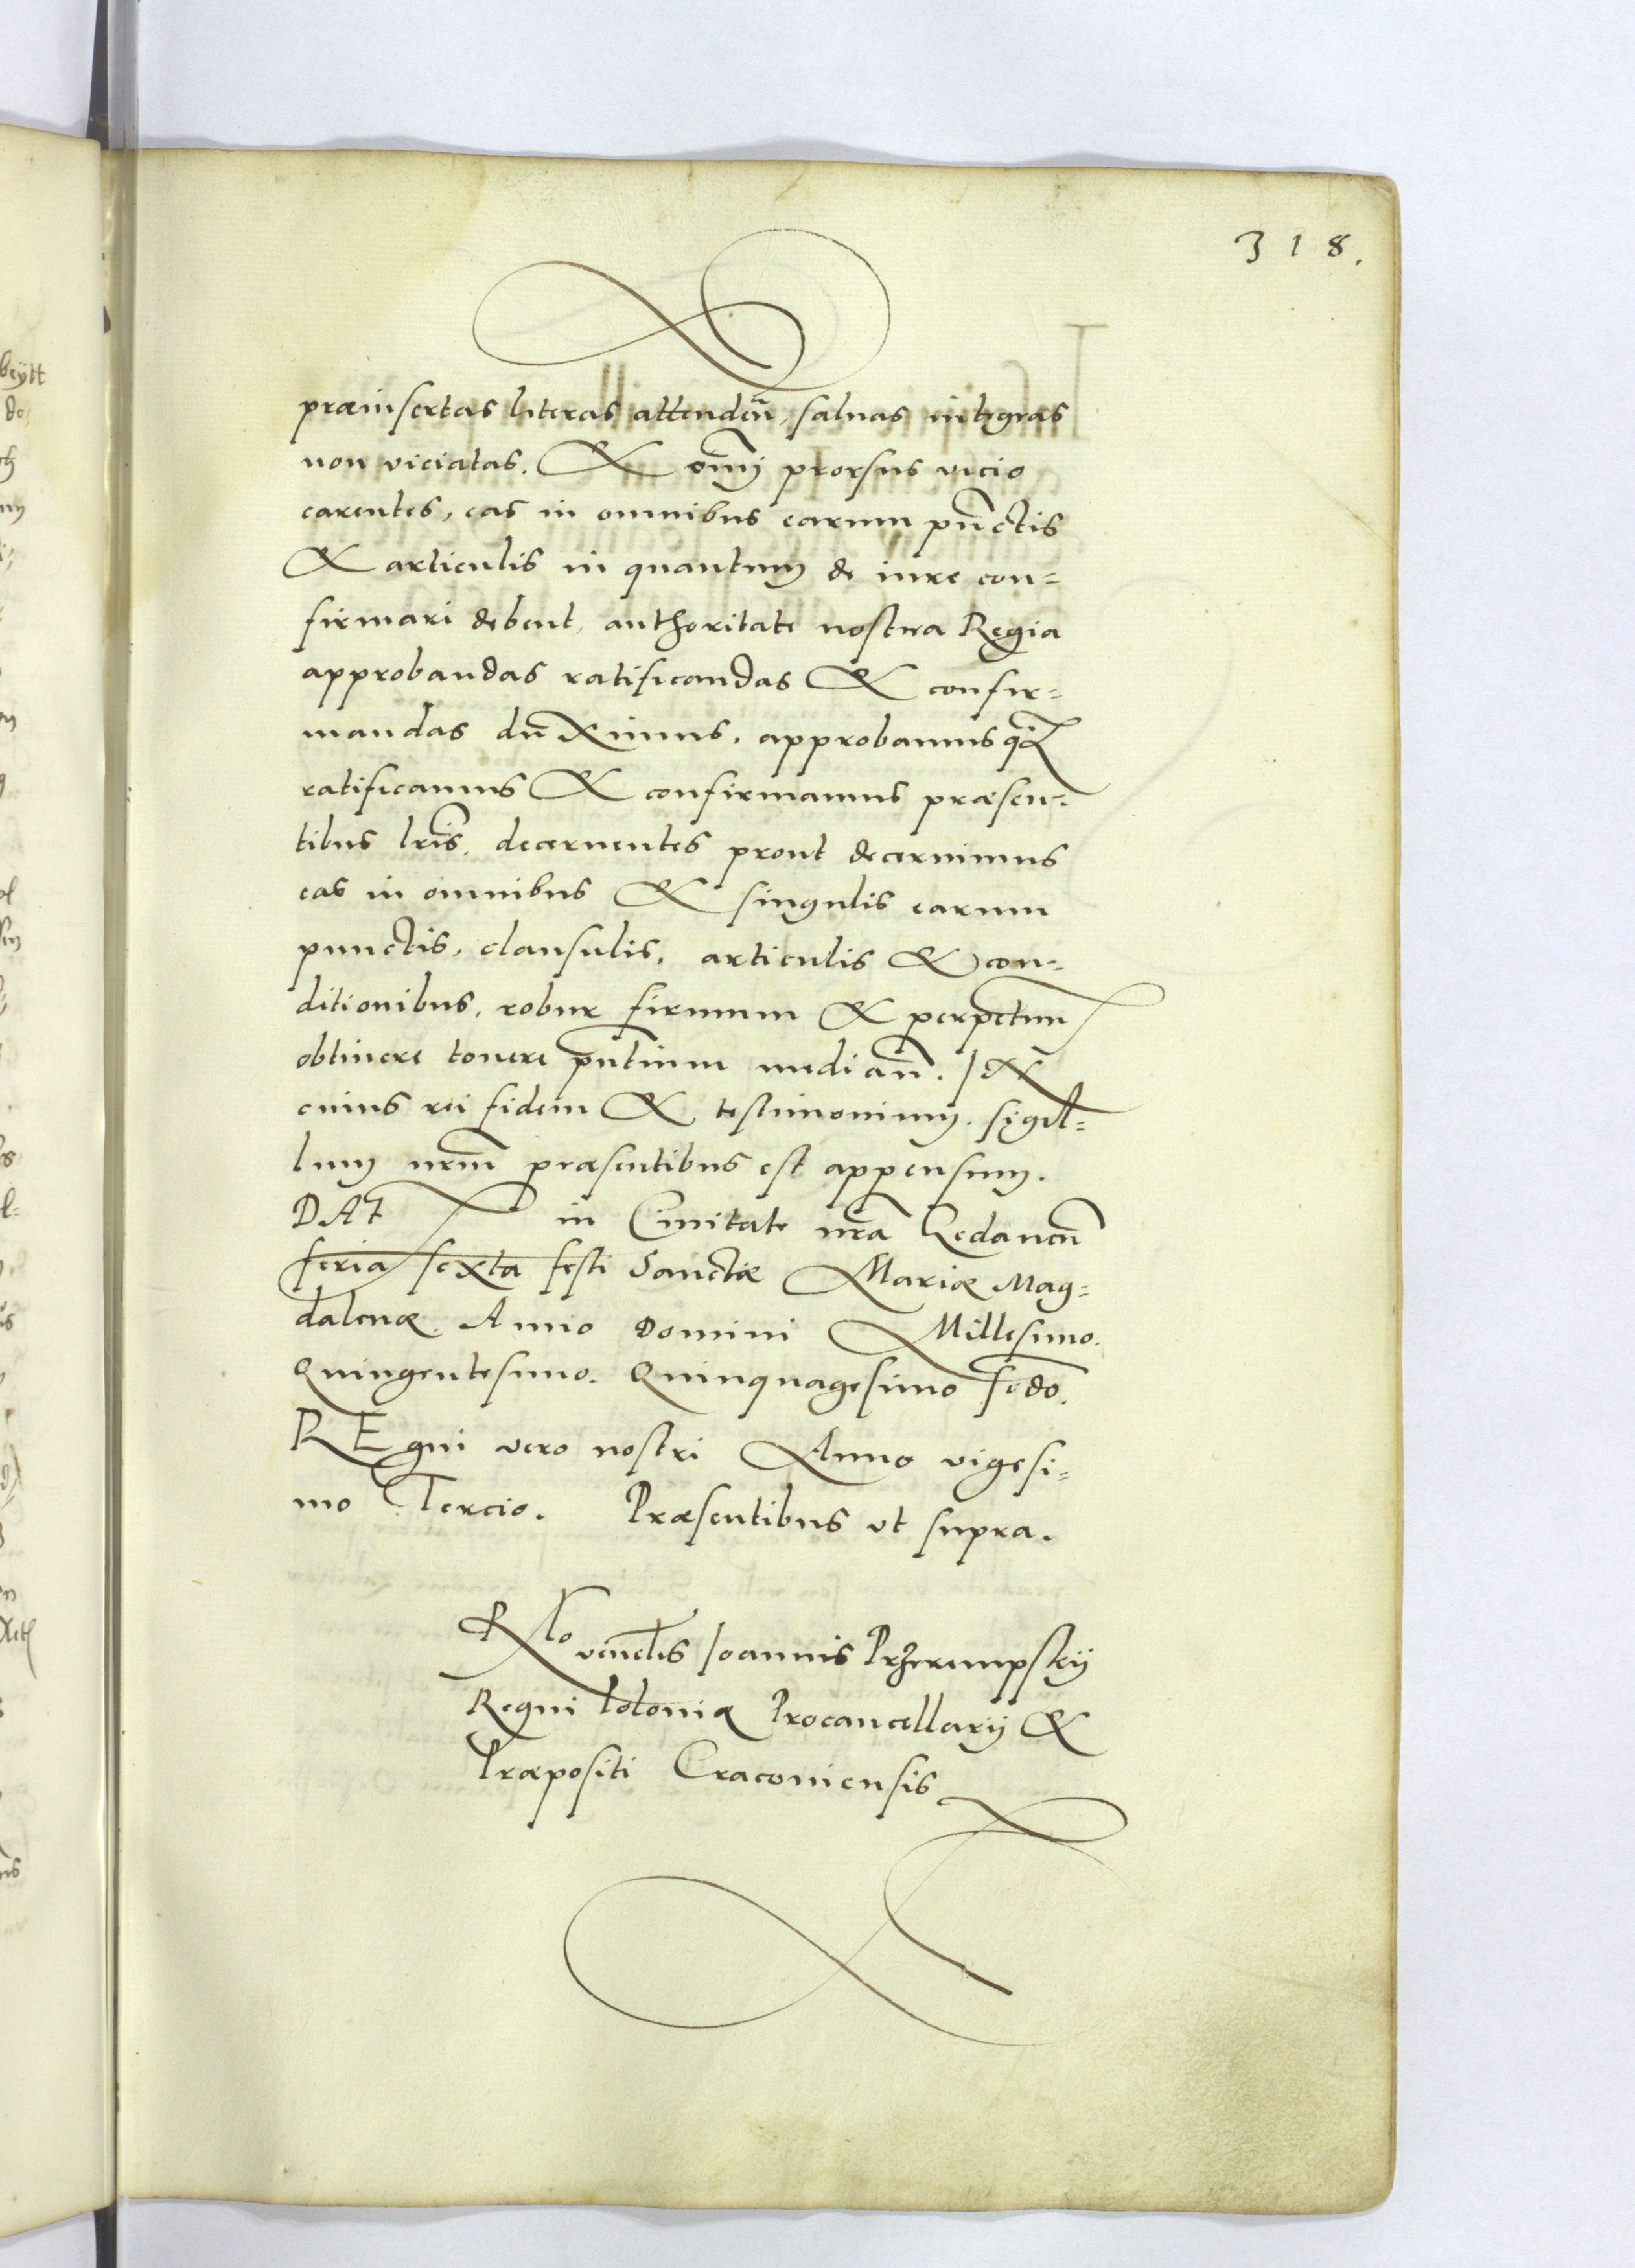 318.
præinsertas literas attendeñ, saluas integras
non viciatas. & om̄j prorsus vicio
carentes, eas in omnibus earum pūctis
& articulis in quantum de iure con=
firmari debent, authoritate nostra Regia
approbandas ratificandas & confir=
mandas dūximus, approbamus
ratificamus & confirmamus præsen=
tibus lr̄is, decernentes prout decernimus
eas in omnibus & singulis earum
punctis, clausulis, articulis & con=
ditionibus, robur firmum & perpetuum
obtinere tenere p̄ntium medi añ. In
cuius rei fidem & testimonium, sigil=
lum nr̄m præsentibus est appensum.
DAT in Ciuitate nr̄a Gedaneñ
feria sexta festi Sanctæ Mariæ Mag=
dalenæ. Anno Domini Millesimo.
Quingentesimo. Quinquagesimo secdo.
REgni vero nostri Anno vigesi=
mo Tercio. Præsentibus vt supra.
Rlo venelis Ioannis Przerempskij
Regni Poloniæ Procancellarij &
Præpositi Cracouiensis